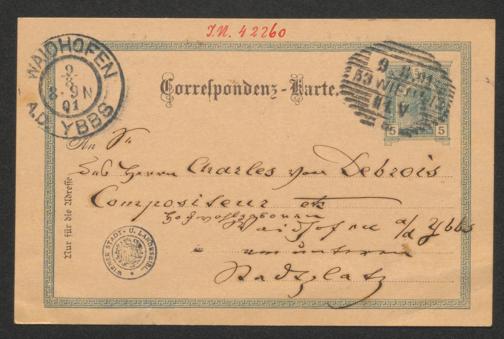 I.N. 42260
WAIDHOFEN
9
8
8-9N
01
A.D. YBBS
9.8.01
53 WIEN
11 V
Correspondenz-Karte.
5 5
An Sr
Nur für die Adresse.
Herrn Charles von Debrois
Compositeur etc
Hochwohlgeboren
Waidhofen a/d Ybbs
unteren
Stadtplatz
WIENER STADT- U. LANDESBIBL.